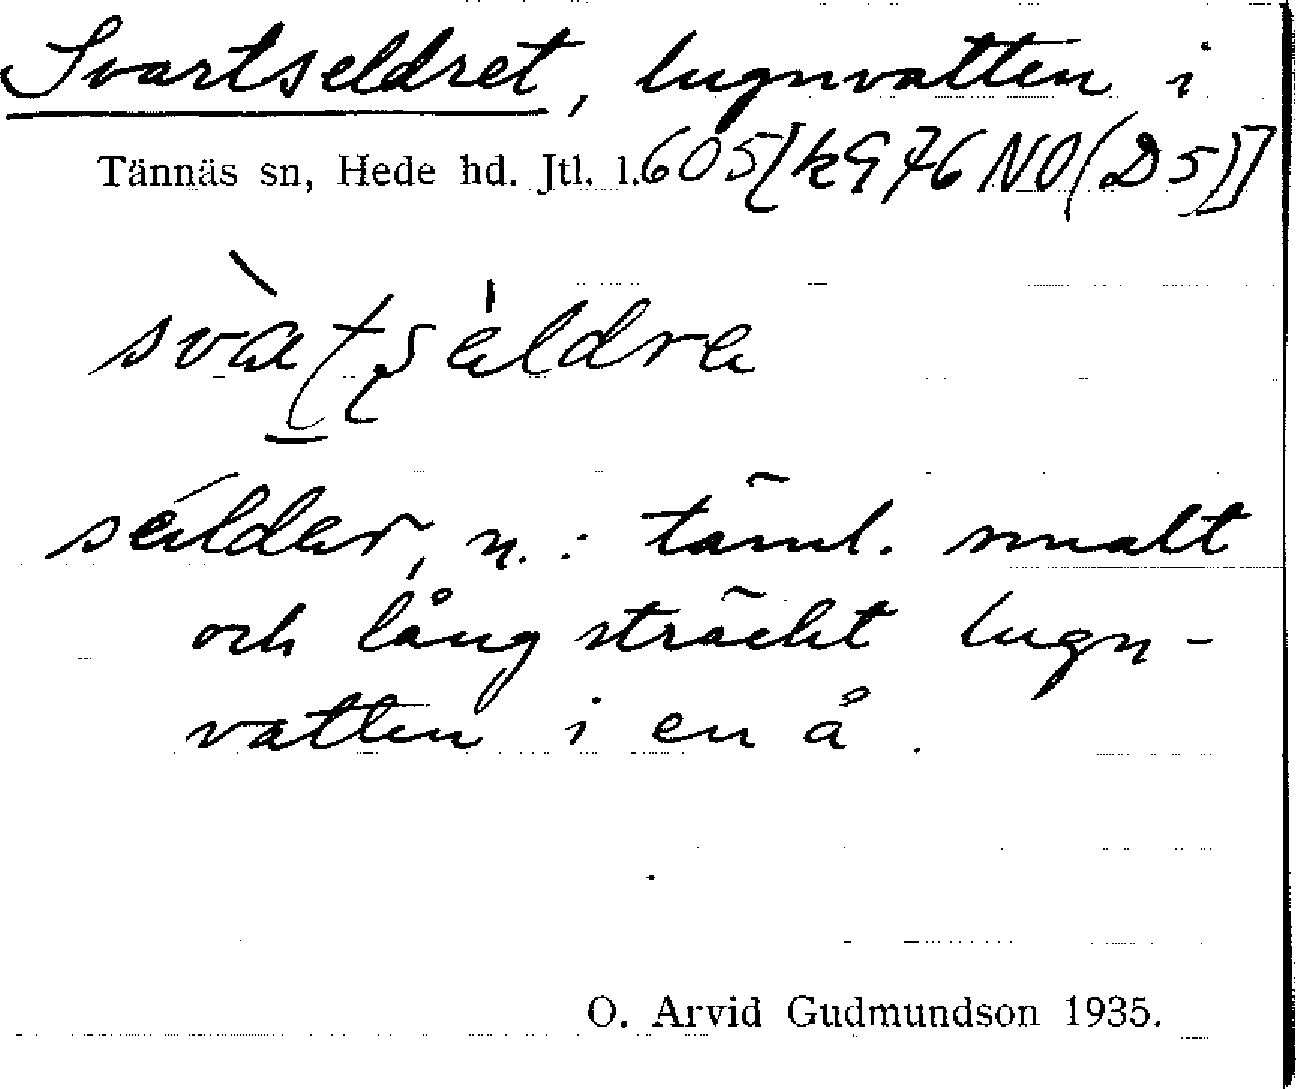 Svartseldret, lugnvatten i
Tännäs sn, Hede hd. Jtl. l. 605[k976NO(D5)]
sväldar, n.: täml. smalt
och långsträckt lugn-
vatten i en å.
O. Arvid Gudmundson 1935.